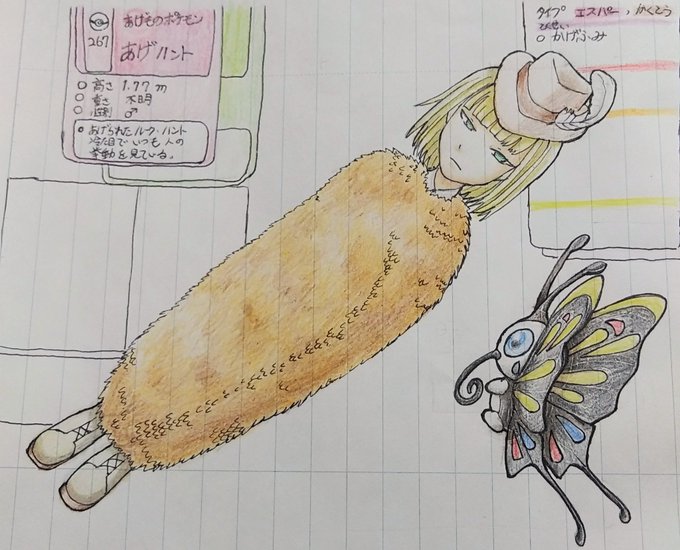 あげものポケモン
267
あげハント
○高さ 1.77m
○重さ 不明
○性別 ♂
●あげられたルーク・ハント
冷た目でいつも人の
挙動を見ている。
タイプ エスパー、かくとう
とくせい
○かげふみ